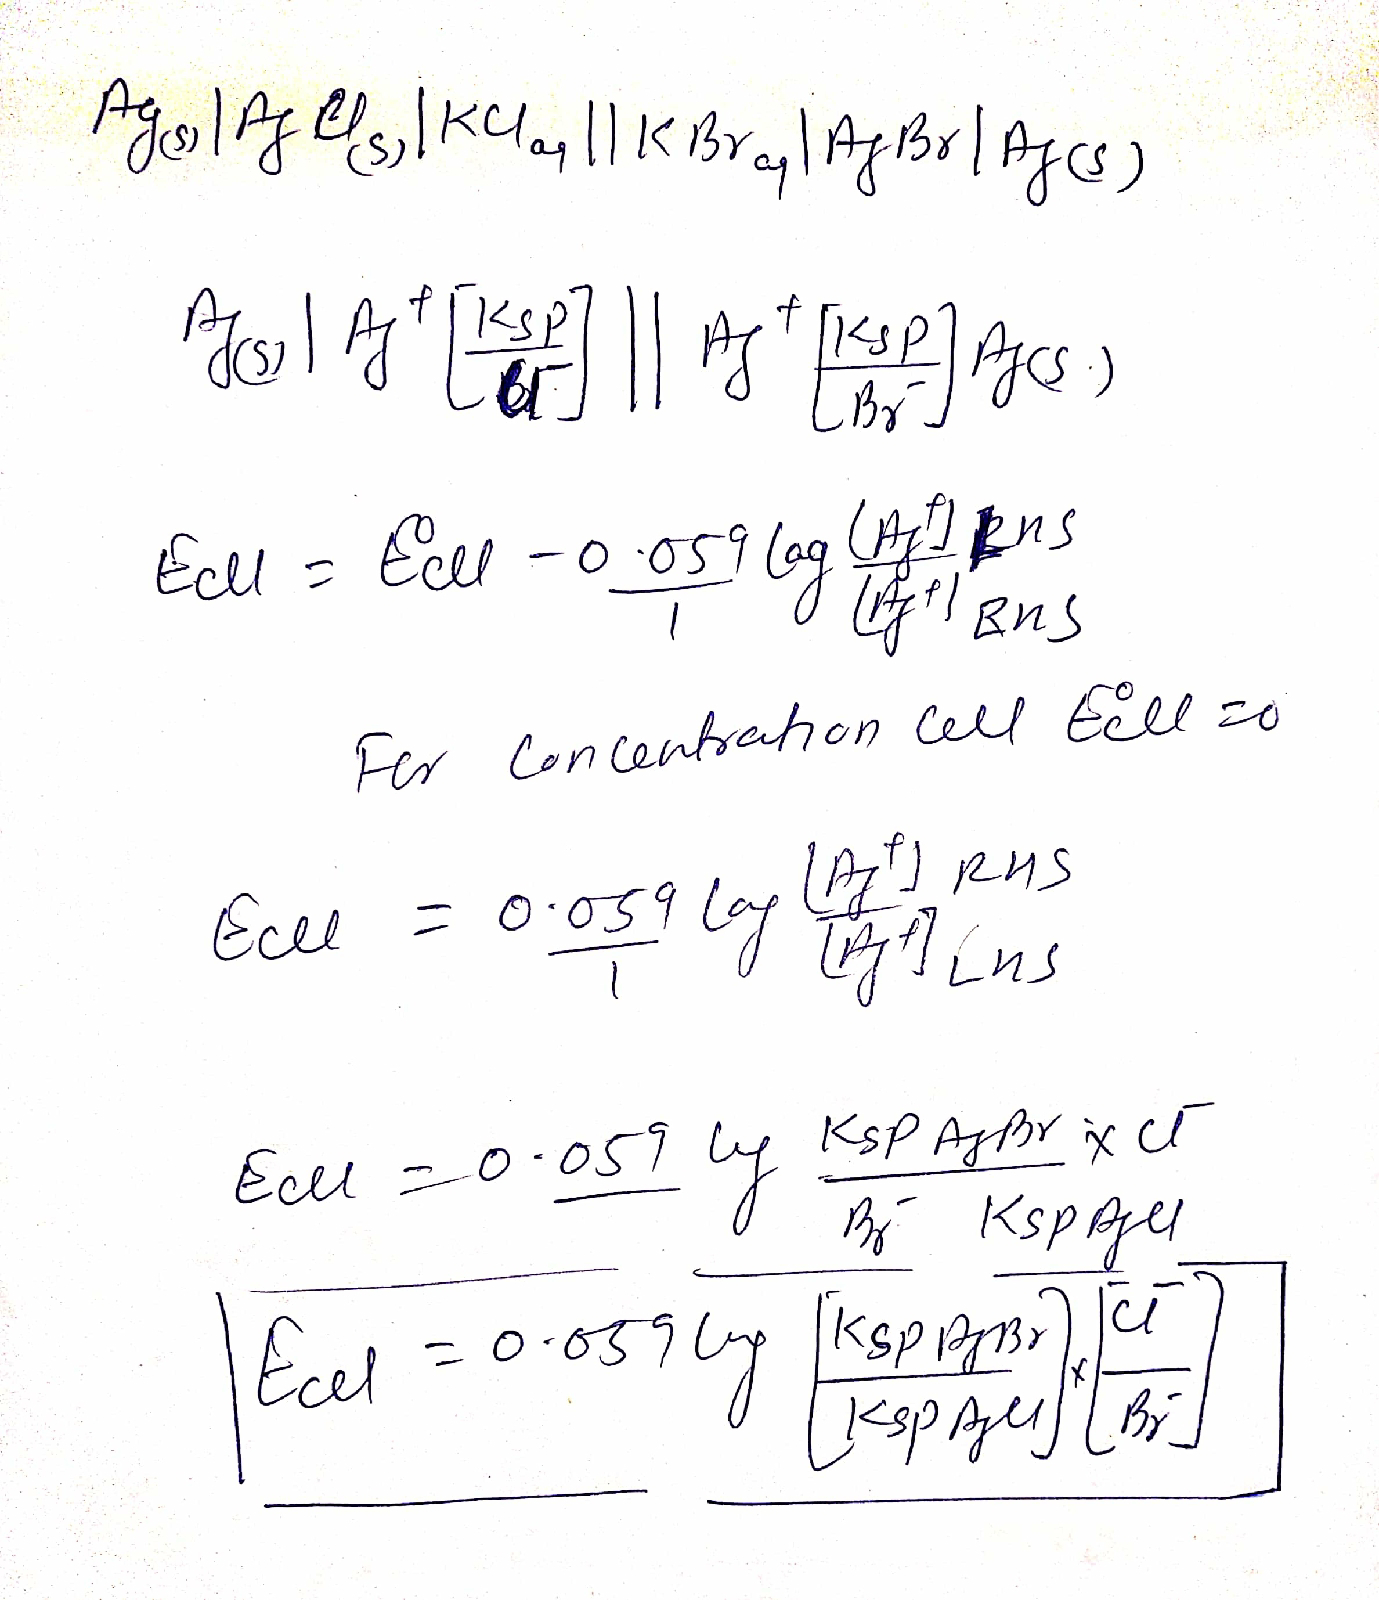 Ag(s) | AgCl(s) | KCl aq || KBr aq | AgBr | Ag(s)
Ag(s) | Ag+ [Ksp / Cl-] || Ag+ [Ksp / Br-] Ag(s)
Ecell = E°cell - 0.059/1 log [Ag+] / [Ag+] RHS
For Concentration cell E°cell = 0
Ecell = 0.059/1 log [Ag+] RHS / [Ag+] LHS
Ecell = 0.059 log Ksp AgBr / Br- x Cl- / Ksp AgCl
Ecell = 0.059 log [Ksp AgBr / Ksp AgCl] x [Cl- / Br-]